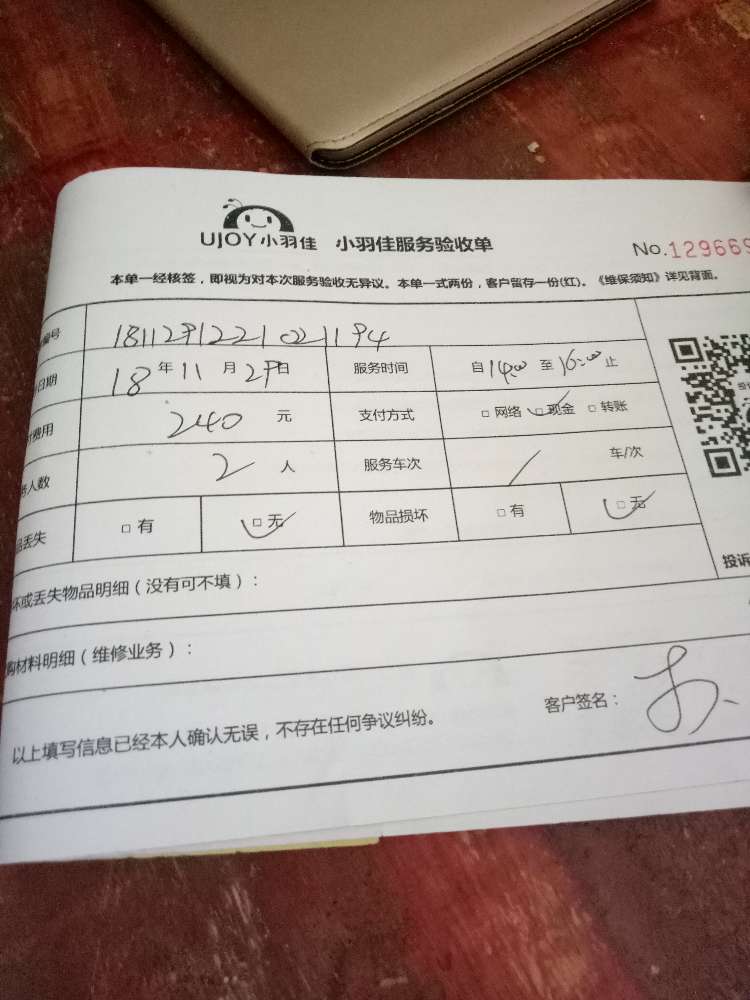 UJOY小羽佳 小羽佳服务验收单
No.129669
本单一经核签，即视为对本次服务验收无异议。本单一式两份，客户留存一份(红)。《维保须知》详见背面。
编号 1811291221021194
日期 18年11月29日 服务时间 自14:00至16:00止
费用 240 元 支付方式 □网络 □现金 □转账
人数 2 人 服务车次 / 车/次
丢失 □有 □无 物品损坏 □有 □无
坏或丢失物品明细（没有可不填）：
购材料明细（维修业务）：
投诉
以上填写信息已经本人确认无误，不存在任何争议纠纷。 客户签名：